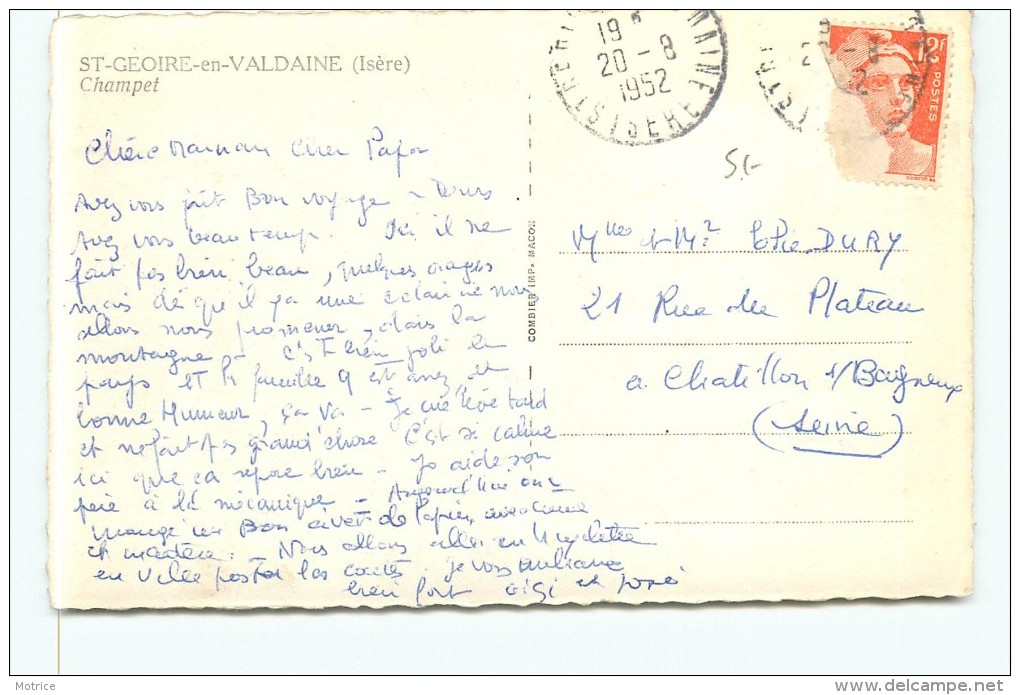 ST-GEOIRE-en-VALDAINE (Isère)
Champet
19
20 - 8
1952
ISERE
12F
POSTES
COMBIER IMP. MACON
Chère Maman Cher Papa
Avez vous fait Bon voyage
Avez vous beau temp. Ici il ne
fait pas bien beau, quelques orages
mais dé qu'il y a une eclaircie nous
allons nous promener, dans la
montagne - C'est bien joli le
pays et la famille est assez de
bonne Humeur, ça va - Je me lève tard
et ne fait pas grand chose C'est si calme
ici que ca repose bien - Jo aide son
père à la mécanique - Aujourd'hui on a
mangé un Bon civet de lapin
et madère. - Nous allons aller en
en Ville poster les cartes. je vous
bien fort Gigi et José
Mme et Mr DURY
21 Rue du Plateau
a Chatillon s/ Bagneux
(Seine)
Motrice
delcampe.net